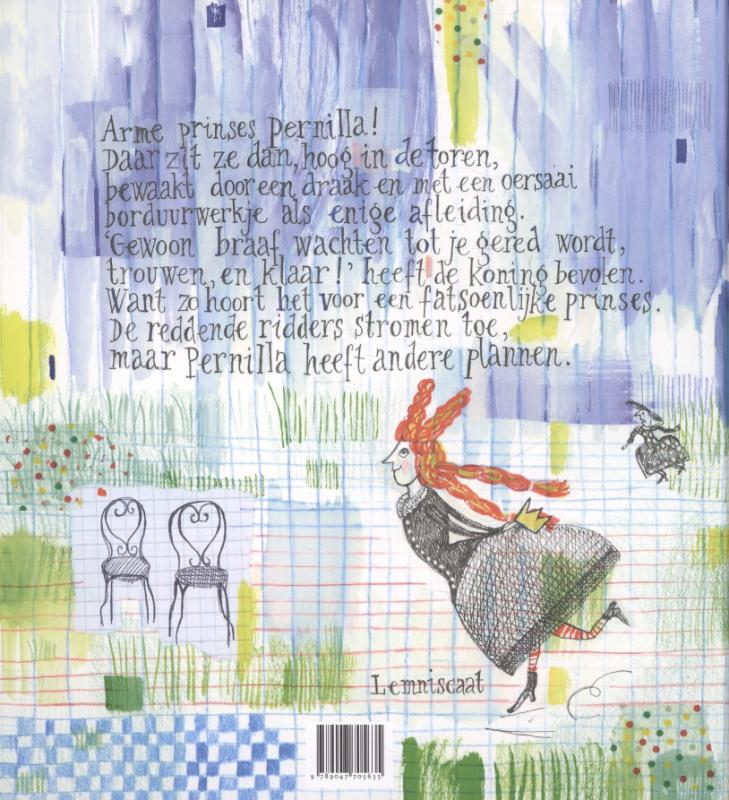 Arme prinses Pernilla!
Daar zit ze dan, hoog in de toren,
bewaakt door een draak en met een oersaai
borduurwerkje als enige afleiding.
'Gewoon braaf wachten tot je gered wordt,
trouwen, en klaar!' heeft de koning bevolen.
Want zo hoort het voor een fatsoenlijke prinses.
De reddende ridders stromen toe,
maar Pernilla heeft andere plannen.
Lemniscaat
9 789047 705635